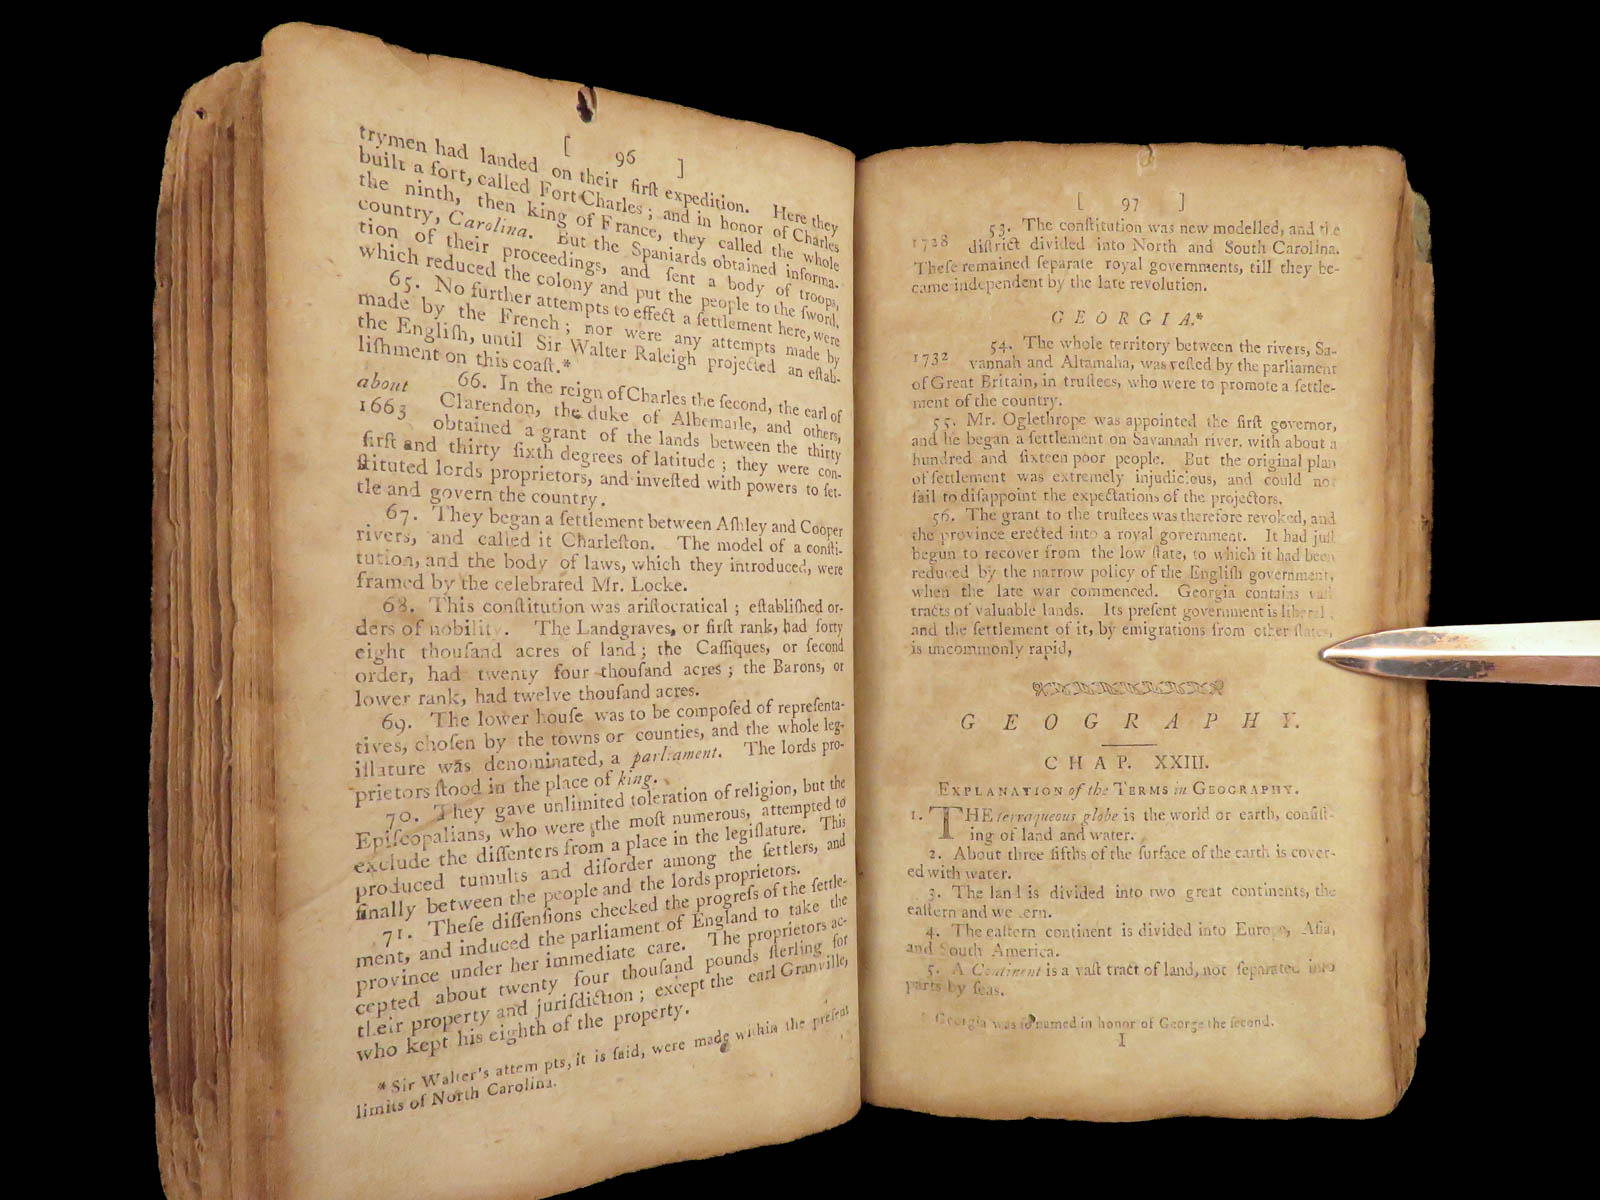 [ 96 ]
trymen had landed on their firſt expedition. Here they
built a fort, called Fort Charles; and in honor of Charles
the ninth, then king of France, they called the whole
country, Carolina. But the Spaniards obtained informa-
tion of their proceedings, and ſent a body of troops,
which reduced the colony and put the people to the ſword.
65. No further attempts to effect a ſettlement here, were
made by the French; nor were any attempts made by
the Engliſh, until Sir Walter Raleigh projected an eſtab-
liſhment on this coaſt.*
about 66. In the reign of Charles the ſecond, the earl of
1663 Clarendon, the duke of Albemarle, and others,
obtained a grant of the lands between the thirty
firſt and thirty ſixth degrees of latitude; they were con-
ſtituted lords proprietors, and inveſted with powers to ſet-
tle and govern the country.
67. They began a ſettlement between Aſhley and Cooper
rivers, and called it Charleſton. The model of a conſti-
tution, and the body of laws, which they introduced, were
framed by the celebrated Mr. Locke.
68. This conſtitution was ariſtocratical; eſtabliſhed or-
ders of nobility. The Landgraves, or firſt rank, had forty
eight thouſand acres of land; the Caſſiques, or ſecond
order, had twenty four thouſand acres; the Barons, or
lower rank, had twelve thouſand acres.
69. The lower houſe was to be compoſed of repreſenta-
tives, choſen by the towns or counties, and the whole leg-
iſlature was denominated, a parliament. The lords pro-
prietors ſtood in the place of king.
70. They gave unlimited toleration of religion, but the
Epiſcopalians, who were the moſt numerous, attempted to
exclude the diſſenters from a place in the legiſlature. This
produced tumults and diſorder among the ſettlers, and
finally between the people and the lords proprietors.
71. Theſe diſſenſions checked the progreſs of the ſettle-
ment, and induced the parliament of England to take the
province under her immediate care. The proprietors ac-
cepted about twenty four thouſand pounds ſterling for
their property and juriſdiction; except the earl Granville,
who kept his eighth of the property.
* Sir Walter's attempts, it is ſaid, were made within the preſent
limits of North Carolina.
[ 97 ]
53. The conſtitution was new modelled, and the
1728 diſtrict divided into North and South Carolina.
Theſe remained ſeparate royal governments, till they be-
came independent by the late revolution.
GEORGIA.*
54. The whole territory between the rivers, Sa-
1732 vannah and Altamaha, was veſted by the parliament
of Great Britain, in truſtees, who were to promote a ſettle-
ment of the country.
55. Mr. Oglethrope was appointed the firſt governor,
and he began a ſettlement on Savannah river, with about a
hundred and ſixteen poor people. But the original plan
of ſettlement was extremely injudicious, and could not
fail to diſappoint the expectations of the projectors.
56. The grant to the truſtees was therefore revoked, and
the province erected into a royal government. It had juſt
begun to recover from the low ſtate, to which it had been
reduced by the narrow policy of the Engliſh government,
when the late war commenced. Georgia contains vaſt
tracts of valuable lands. Its preſent government is liberal,
and the ſettlement of it, by emigrations from other ſtates,
is uncommonly rapid,
GEOGRAPHY.
CHAP. XXIII.
EXPLANATION of the TERMS in GEOGRAPHY.
1. THE terraqueous globe is the world or earth, conſiſt-
ing of land and water.
2. About three fifths of the ſurface of the earth is cover-
ed with water.
3. The land is divided into two great continents, the
eaſtern and weſtern.
4. The eaſtern continent is divided into Europe, Aſia,
and South America.
5. A Continent is a vaſt tract of land, not ſeparated into
parts by ſeas.
* Georgia was ſo named in honor of George the ſecond.
I